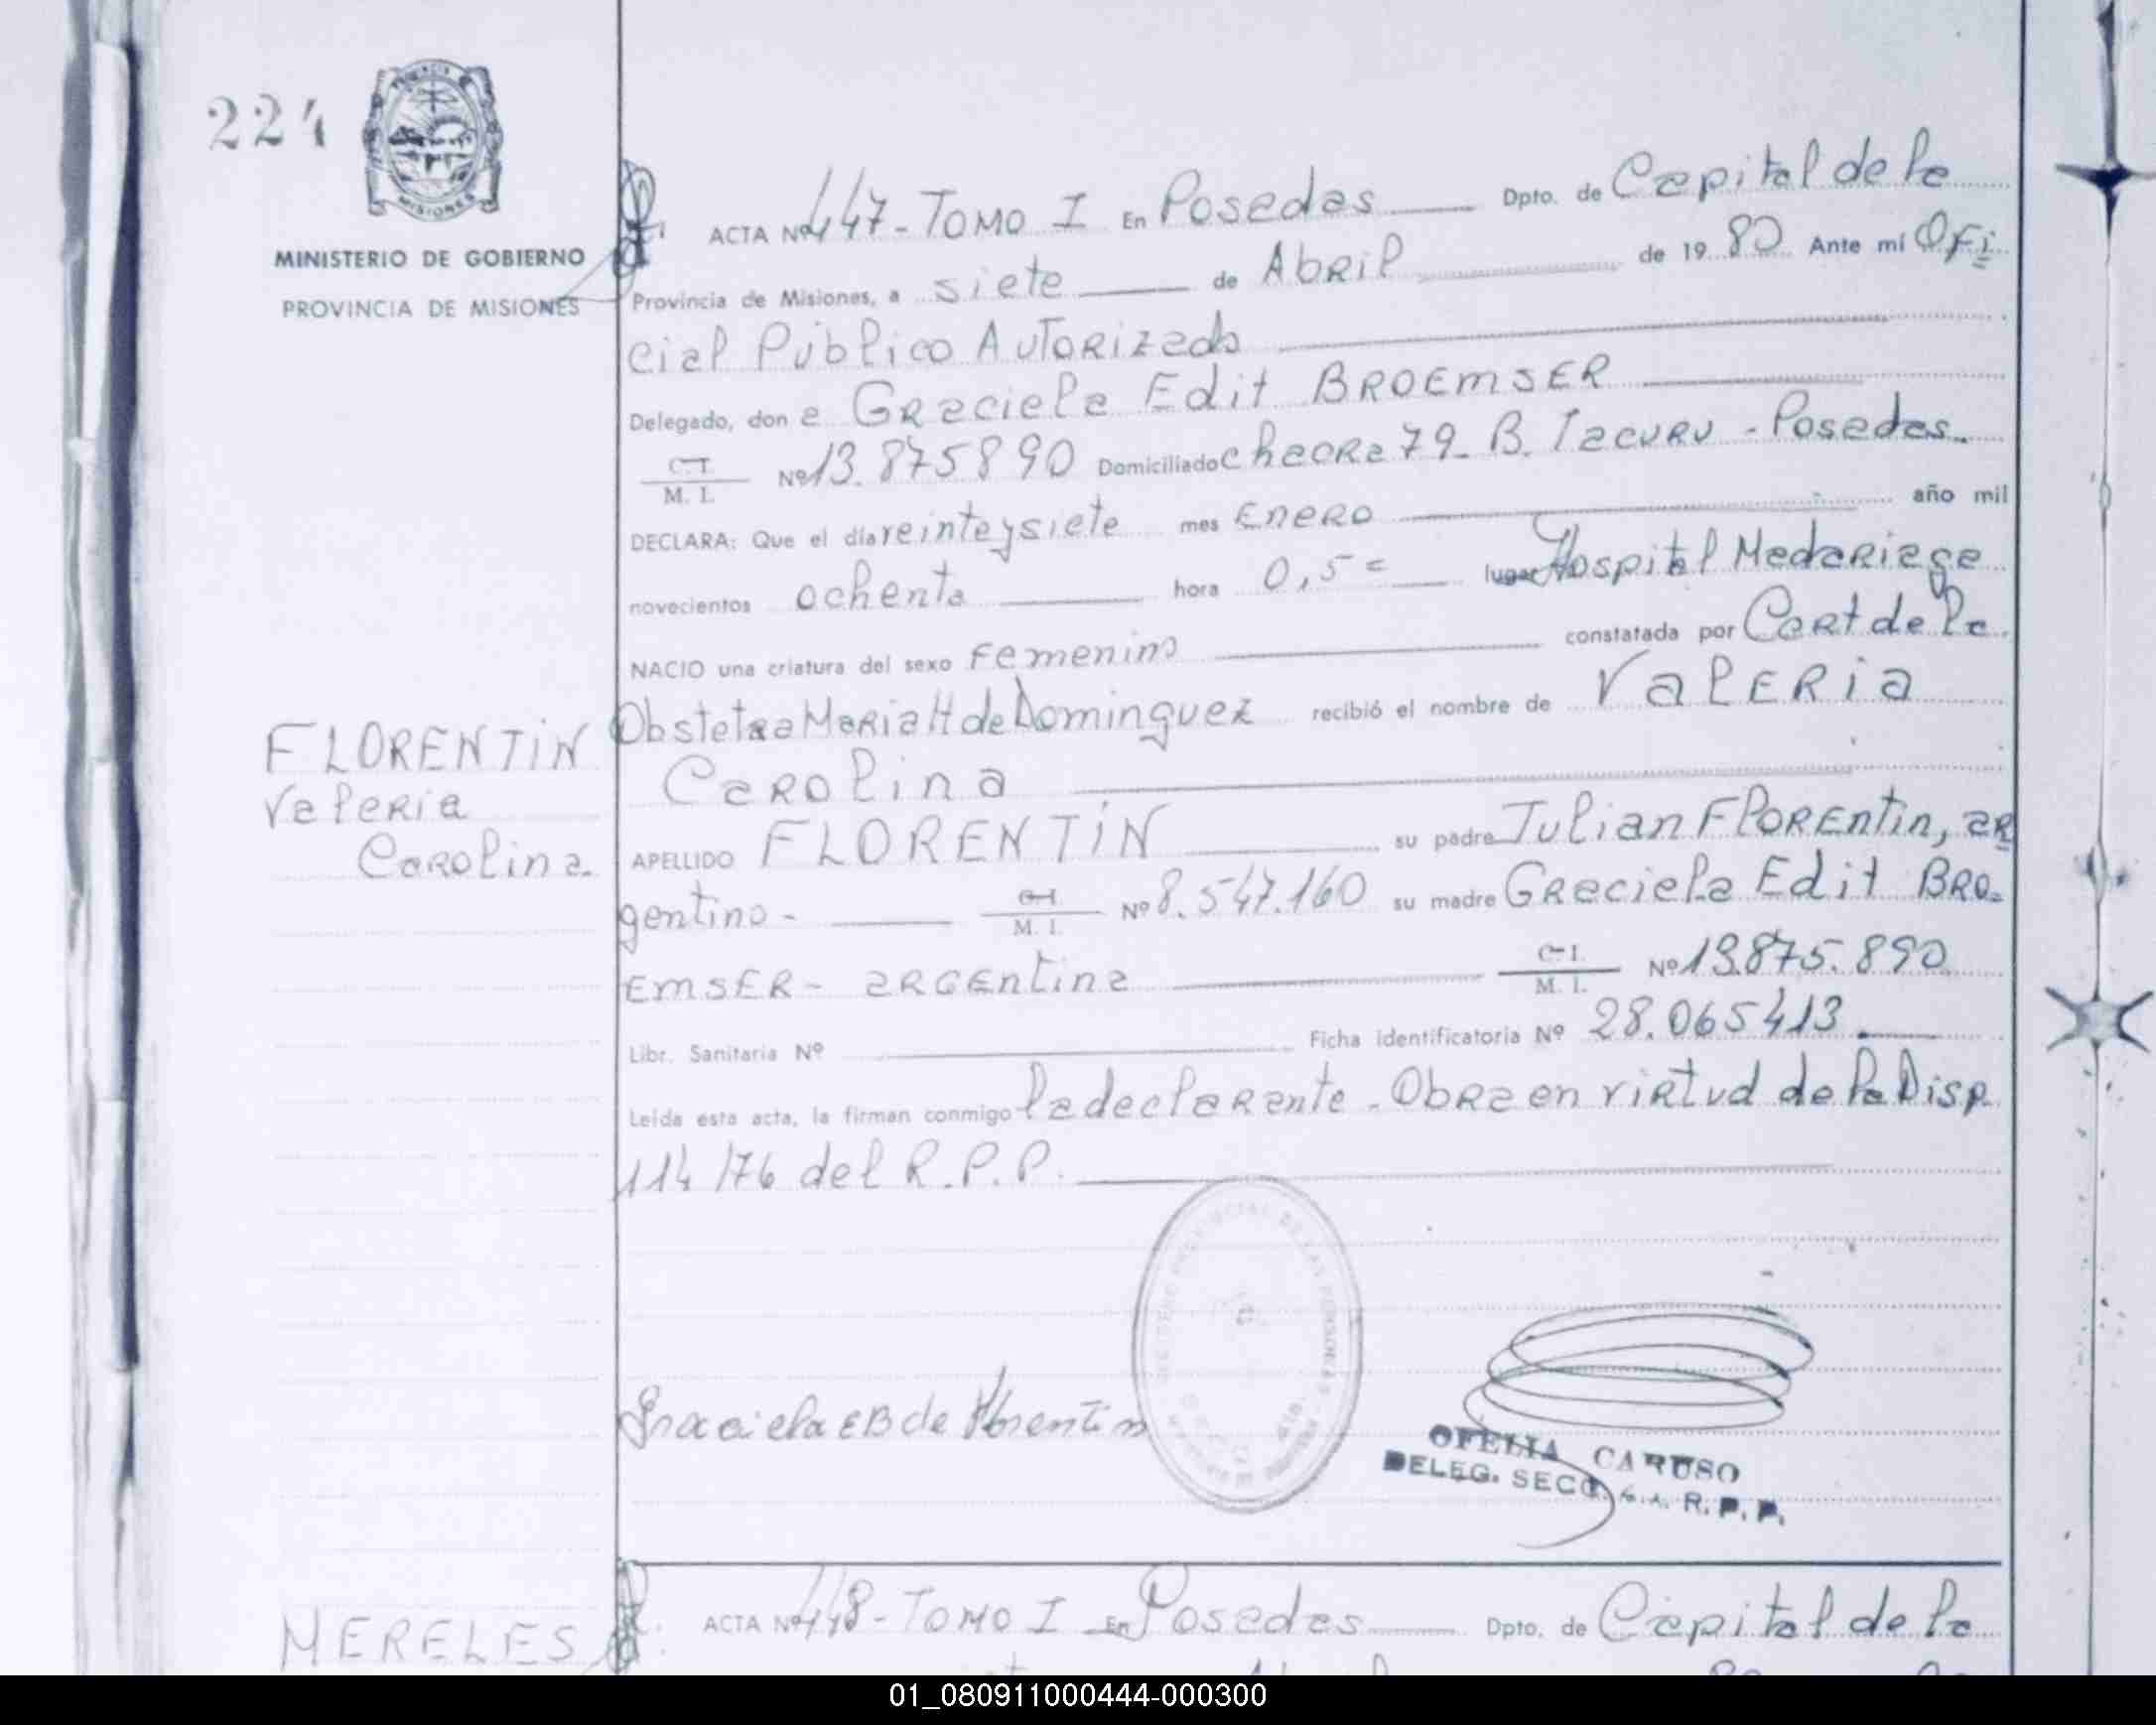 224
MISIONES
MINISTERIO DE GOBIERNO
PROVINCIA DE MISIONES
ACTA Nº 447 - TOMO I En Posadas Dpto. de Capital de la
Provincia de Misiones, a siete de Abril de 1980 Ante mí Ofi
cial Público Autorizado
Delegado, don a Graciela Edit BROEMSER
C.I. M. I. Nº 13.875890 Domiciliado chacra 79_ B. Tacuru - Posadas.
DECLARA: Que el día veinteysiete mes Enero año mil
novecientos ochenta hora 0,5 = lugar Hospital Madariaga
NACIO una criatura del sexo Femenino constatada por Cert de la
Obstetra Maria H de Dominguez recibió el nombre de Valeria
Carolina
FLORENTIN
Valeria
Carolina
APELLIDO FLORENTIN su padre Julian Florentin, ar
gentino - C.I. M. I. Nº 8.547.160 su madre Graciela Edit BRO-
EMSER - argentina C.I. M. I. Nº 13.875.890
Libr. Sanitaria Nº Ficha identificatoria Nº 28.065413.
Leída esta acta, la firman conmigo la declarante - Obra en virtud de la Disp.
114/76 del R.P.P.
Graciela E B de Florentin
OFELIA CARUSO
DELEG. SECC. R. P. P.
MERELES
ACTA Nº 448 - TOMO I En Posadas Dpto. de Capital de la
01_080911000444-000300